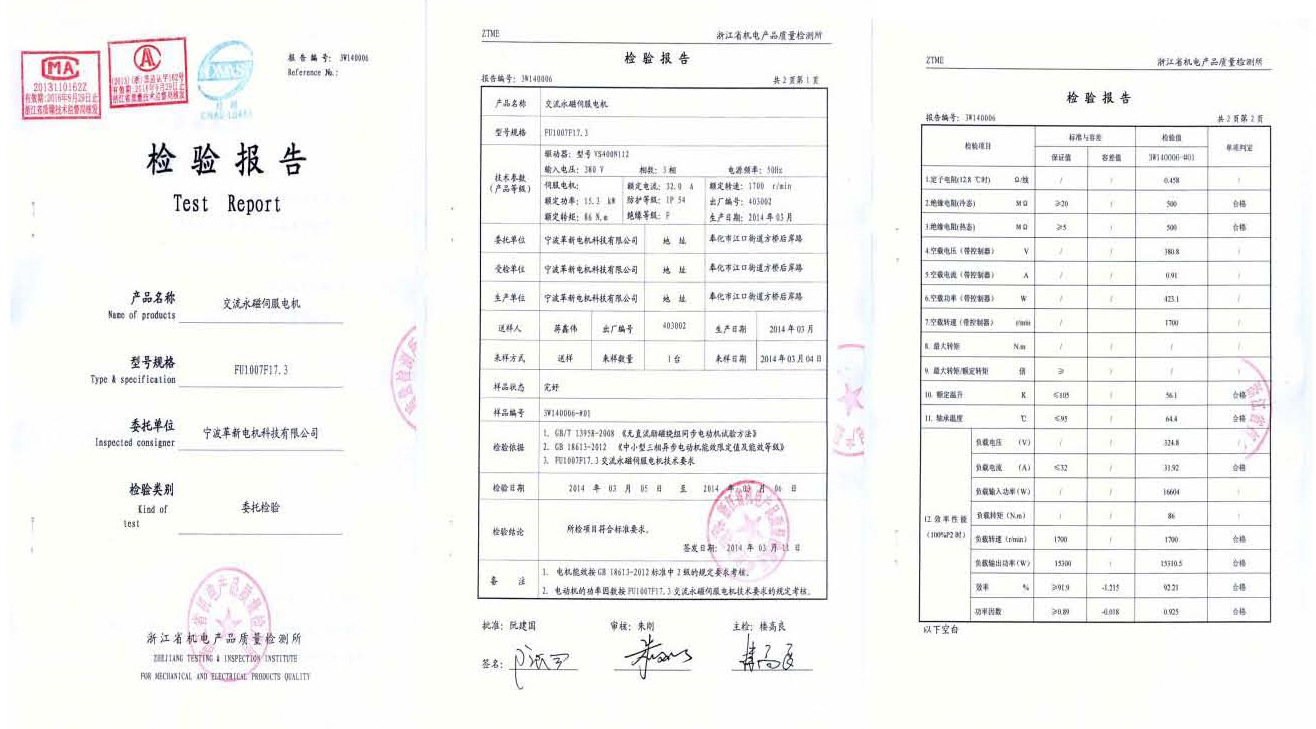 MA
2013110162Z
有效期:2016年9月29日止
浙江省质量技术监督局核发
有效期:2016年9月29日止
浙江省质量技术监督局核发
报告编号: 3W140006
Reference No.:
检验报告
Test Report
产品名称
交流永磁伺服电机
Name of products
型号规格
FU1007F17.3
Type & specification
委托单位
宁波革新电机科技有限公司
Inspected consigner
检验类别
委托检验
Kind of
test
浙江省机电产品质量检测所
ZHEJIANG TESTING & INSPECTION INSTITUTE
FOR MECHANICAL AND ELECTRICAL PRODUCTS QUALITY
ZTME 浙江省机电产品质量检测所
检验报告
报告编号: 3W140006 共2页第1页
产品名称 交流永磁伺服电机
型号规格 FU1007F17.3
技术参数
(产品等级)
驱动器: 型号 VS400N112
输入电压: 380 V 相数: 3相 电源频率: 50Hz
伺服电机: 额定电流: 32.0 A 额定转速: 1700 r/min
额定功率: 15.3 kW 防护等级: IP 54 出厂编号: 403002
额定转矩: 86 N.m 绝缘等级: F 生产日期: 2014年03月
委托单位 宁波革新电机科技有限公司 地 址 奉化市江口街道方桥后岸路
受检单位 宁波革新电机科技有限公司 地 址 奉化市江口街道方桥后岸路
生产单位 宁波革新电机科技有限公司 地 址 奉化市江口街道方桥后岸路
送样人 蒋鑫伟 出厂编号 403002 生产日期 2014年03月
来样方式 送样 来样数量 1台 来样日期 2014年03月04日
样品状态 完好
样品编号 3W140006-#01
检验依据
1. GB/T 13958-2008 《无直流励磁绕组同步电动机试验方法》
2. GB 18613-2012 《中小型三相异步电动机能效限定值及能效等级》
3. FU1007F17.3交流永磁伺服电机技术要求
检验日期 2014 年 03 月 05 日 至 2014 年 03 月 06 日
检验结论 所检项目符合标准要求。
签发日期: 2014 年 03 月 11 日
备 注
1. 电机能效按GB 18613-2012标准中2级的规定要求考核。
2. 电动机的功率因数按FU1007F17.3交流永磁伺服电机技术要求的规定考核。
批准: 阮建国 审核: 朱刚 主检: 楼高良
签名:
ZTME 浙江省机电产品质量检测所
检验报告
报告编号: 3W140006 共2页第2页
检验项目 标准与容差 检验值 单项判定
保证值 容差值 3W140006-#01
1.定子电阻(12.8 ℃时) Ω/线 / / 0.458 /
2.绝缘电阻(冷态) MΩ ≥20 / 500 合格
3.绝缘电阻(热态) MΩ ≥5 / 500 合格
4.空载电压(带控制器) V / / 380.8 /
5.空载电流(带控制器) A / / 0.91 /
6.空载功率(带控制器) W / / 423.1 /
7.空载转速(带控制器) r/min / / 1700 /
8. 最大转矩 N.m / / / /
9. 最大转矩/额定转矩 倍 ≥ / / /
10. 额定温升 K ≤105 / 56.1 合格
11. 轴承温度 ℃ ≤95 / 64.4 合格
12.效率性能
(100%P2时)
负载电压 (V) / / 324.8 /
负载电流 (A) ≤32 / 31.92 合格
负载输入功率(W) / / 16604 /
负载转矩 (N.m) / / 86 /
负载转速 (r/min) 1700 / 1700 合格
负载输出功率(W) 15300 / 15310.5 合格
效率 % ≥91.9 -1.215 92.21 合格
功率因数 ≥0.89 -0.018 0.925 合格
以下空白